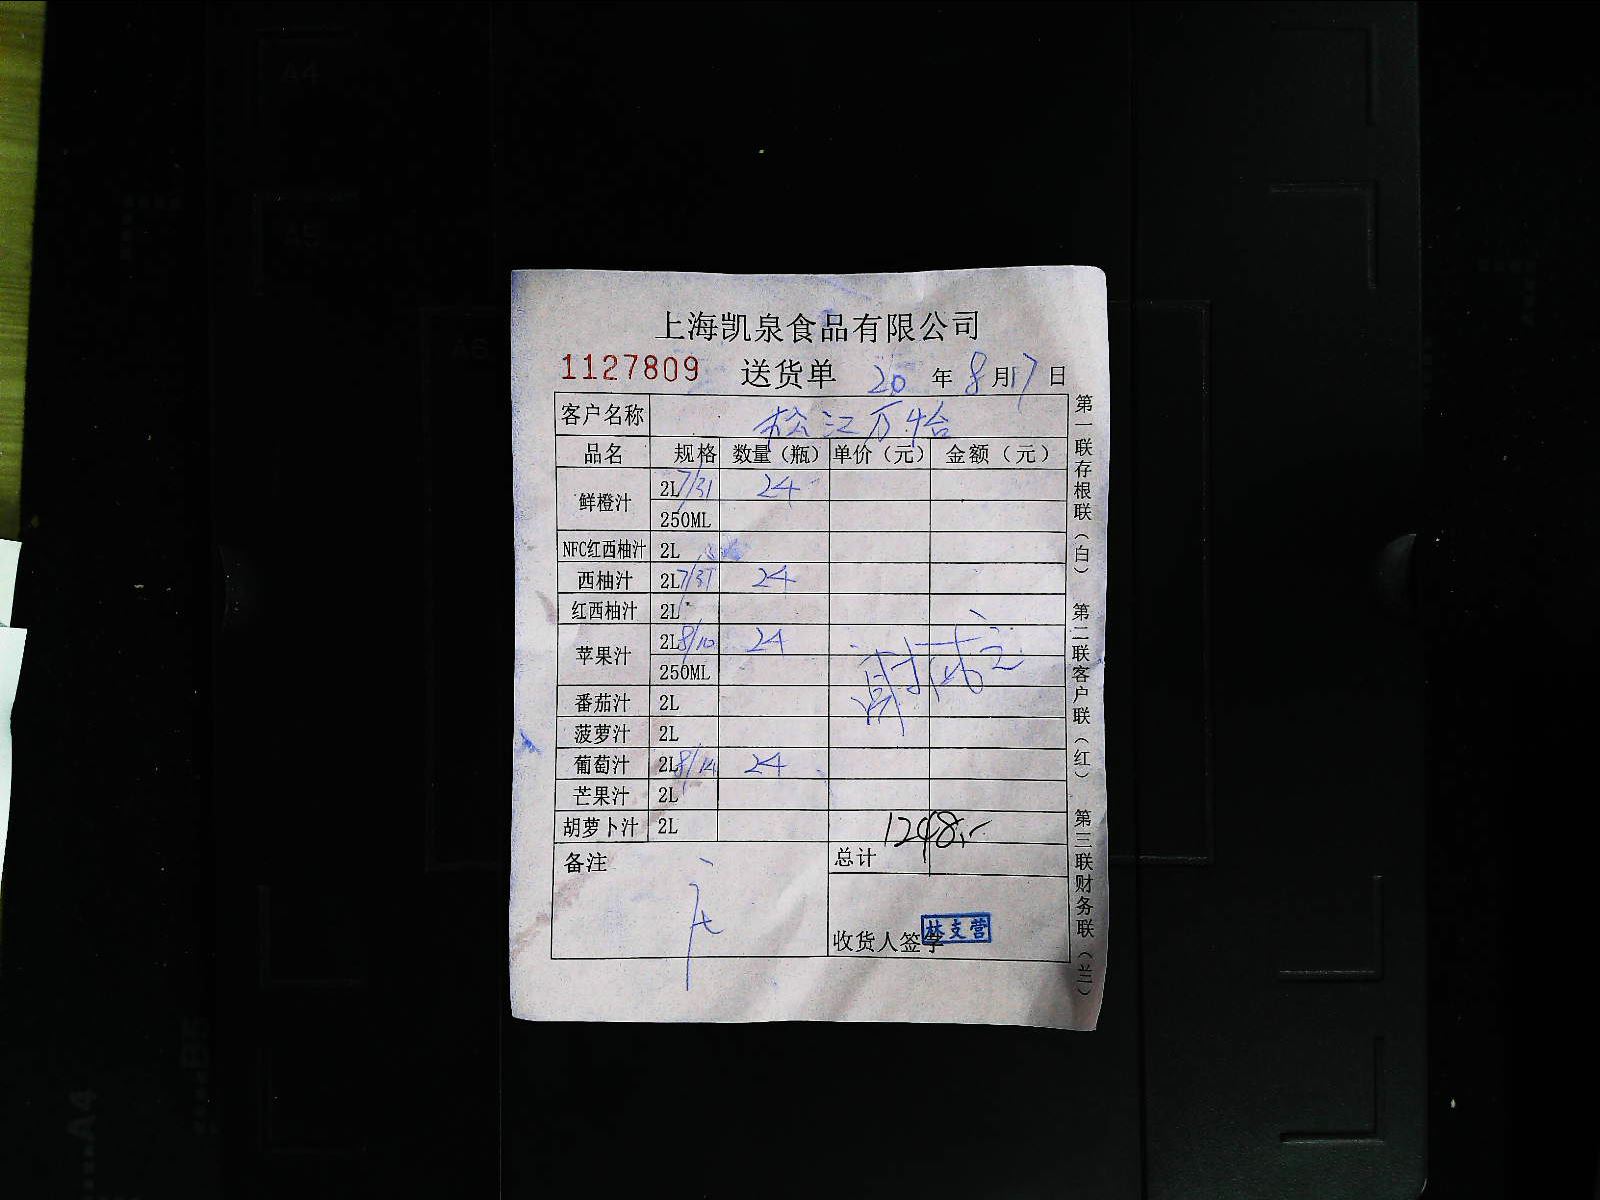 上海凯泉食品有限公司
1127809 送货单 20 年 8 月 17 日
客户名称 松江万怡
品名 规格 数量（瓶） 单价（元） 金额（元）
鲜橙汁 2L 7/31 24
250ML
NFC红西柚汁 2L
西柚汁 2L 7/31 24
红西柚汁 2L
苹果汁 2L 8/10 24
250ML
番茄汁 2L
菠萝汁 2L
葡萄汁 2L 8/14 24
芒果汁 2L
胡萝卜汁 2L
备注 总计 1248
收货人签字 林支营
第一联存根联（白） 第二联客户联（红） 第三联财务联（兰）
A4
A5
A6
B5
A4